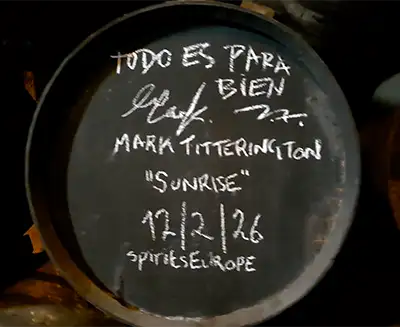 TODO ES PARA
BIEN
MARK TITTERINGTON
"SUNRISE"
12/2/26
spiritsEUROPE